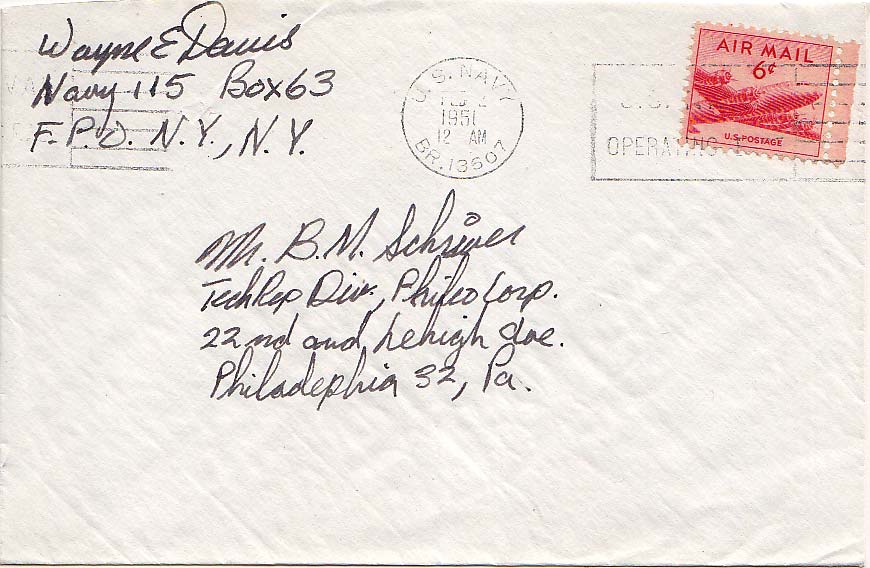 Wayne E Davis
Navy 115 Box 63
F.P.O. N.Y., N.Y.
U.S. NAVY
FEB 2
1951
12 AM
BR. 13507
U.S.
OPERATING
AIR MAIL
6¢
U.S. POSTAGE
Mr. B.M. Schriver
TechRep Div., Philco Corp.
22nd and Lehigh Ave.
Philadephia 32, Pa.